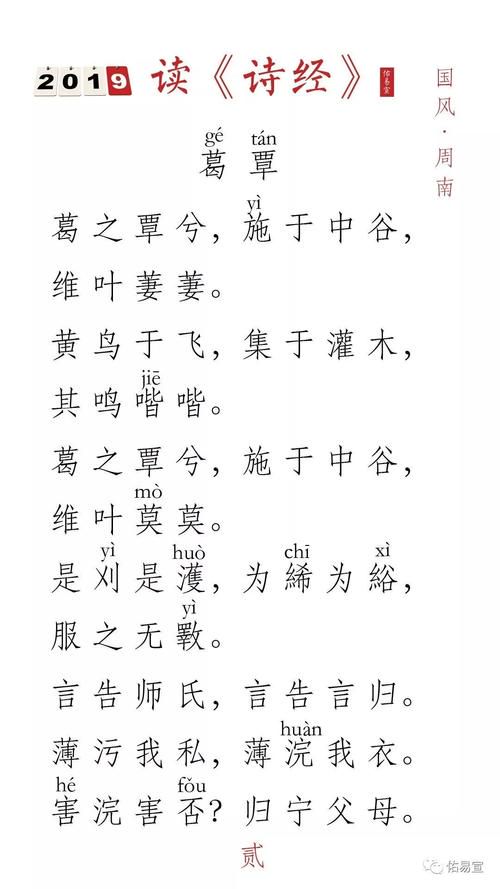 2019 读《诗经》 佑易宣
国风·周南
gé tán
葛覃
yì
葛之覃兮，施于中谷，
维叶萋萋。
黄鸟于飞，集于灌木，
jiē
其鸣喈喈。
葛之覃兮，施于中谷，
mò
维叶莫莫。
yì huò chī xì
是刈是濩，为絺为綌，
yì
服之无斁。
言告师氏，言告言归。
huàn
薄污我私，薄浣我衣。
hé fǒu
害浣害否？归宁父母。
贰
佑易宣